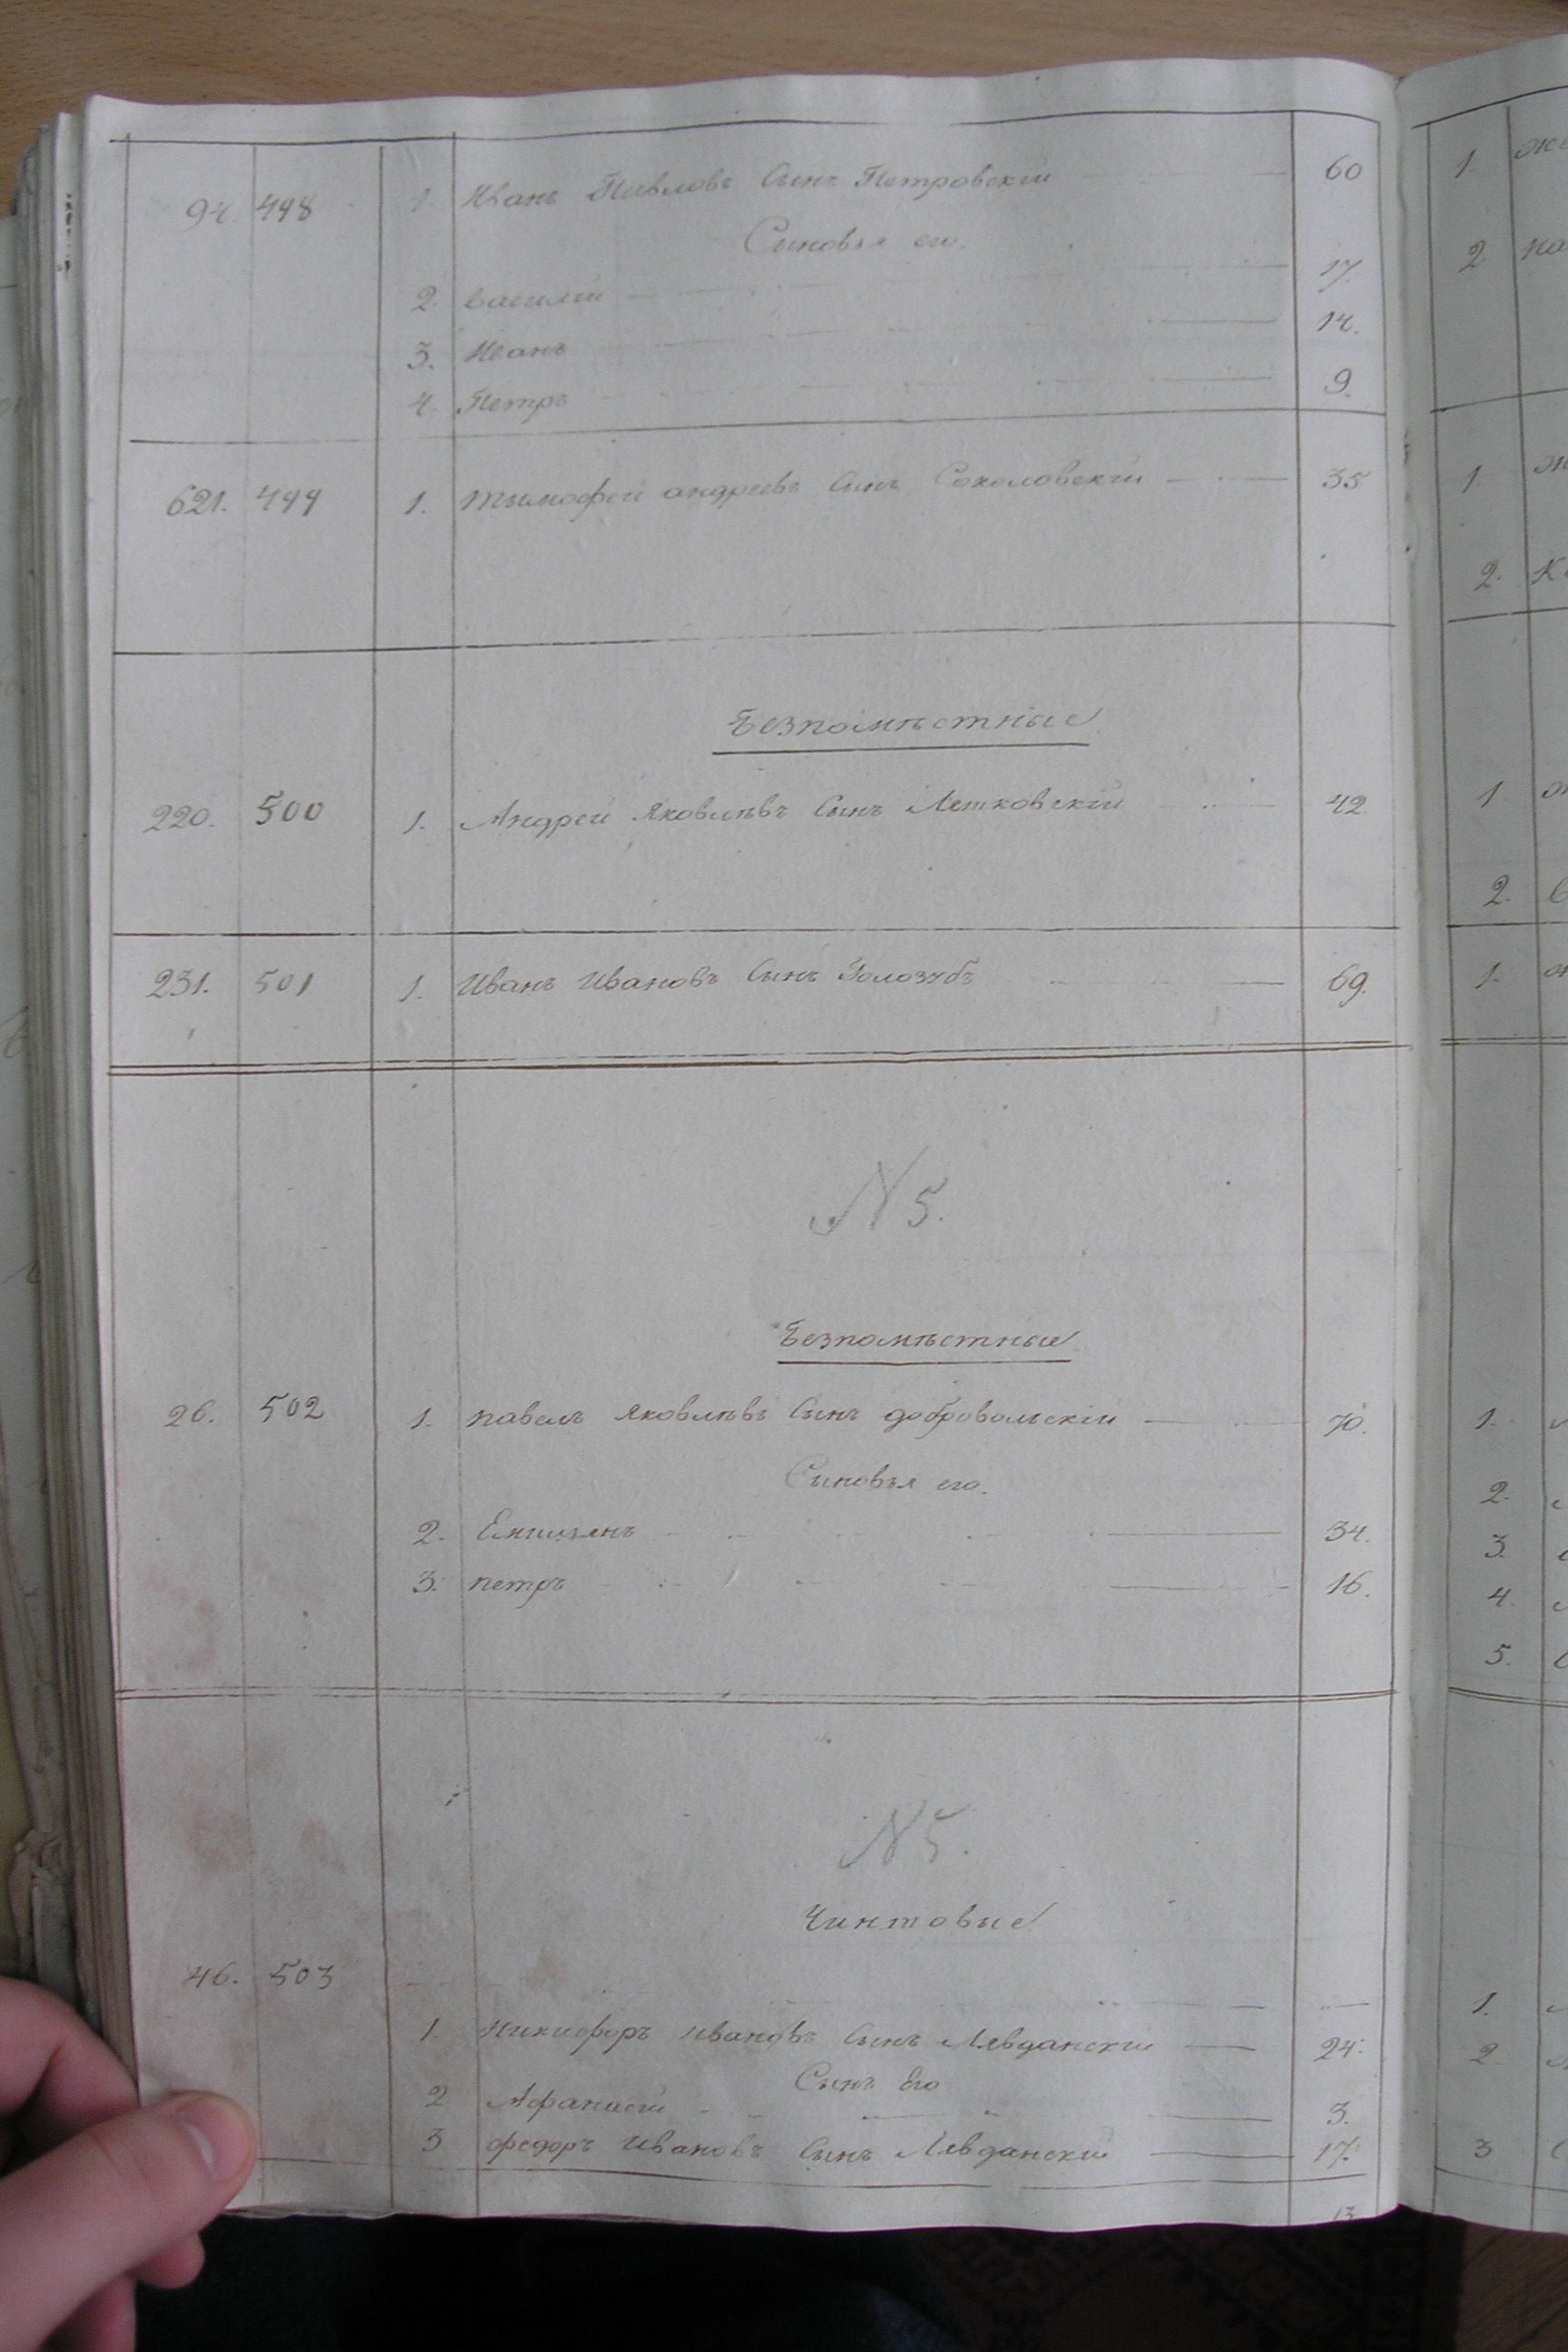 94. 498 1. Иванъ Павловъ Сынъ Петровскій 60
Сыновья его.
2. Василій 17.
3. Иванъ 14.
4. Петръ 9.
621. 499 1. Тымофей андреевъ Сынъ Соколовскій 35
Безпомѣстные
220. 500 1. Андрей Яковлѣвъ Сынъ Летковскій 42.
231. 501 1. Иванъ Ивановъ Сынъ Голозубъ 69.
N 5.
Безпомѣстные
26. 502 1. павелъ Яковлѣвъ Сынъ добровольскій 70.
Сыновья его.
2. Емилиянъ 34.
3. петръ 16.
N 5.
Чинтовые
46. 503
1. Никифоръ Ивановъ Сынъ Лявданскій 24.
Сынъ Его
2 Афанасій 3.
3 федоръ Ивановъ Сынъ Лявданскій 17.
13
1.
2. на
1
2.
1
2.
1.
1.
2.
3.
4.
5.
1.
2
3